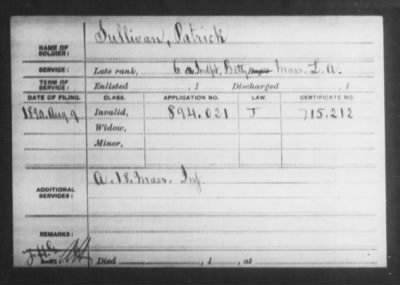 Sullivan, Patrick
NAME OF SOLDIER:
SERVICE: Late rank, 6 Indpt. Batty Mass. L. A.
TERM OF SERVICE: Enlisted , 1 Discharged , 1
DATE OF FILING. CLASS. APPLICATION NO. LAW. CERTIFICATE NO.
1890. Aug 9 Invalid, 894.021 J 715.212
Widow,
Minor,
ADDITIONAL SERVICES: A. 18. Mass. Inf
REMARKS:
Died , 1 , at